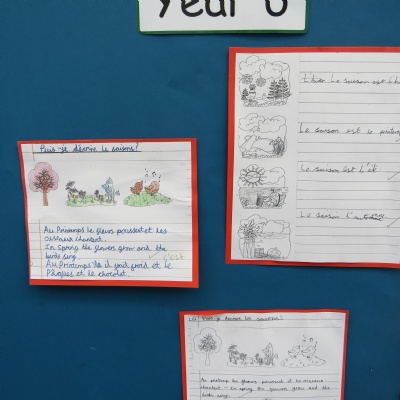 Year 6
Puis-je décrire le saisons?
Au Printemps le fleurs poussent et les
oiseaux chantent.
In spring the flowers grow and the
birds sing.
c'est
Au Printemps il fait froid et le
Pâques et le chocolat.
le saison est
Le saison est le printemps
Le saison est l'été
Le saison
Au printemps le fleurs poussent et le oiseaux
chantent - In spring the flowers grow and the
birds sing.